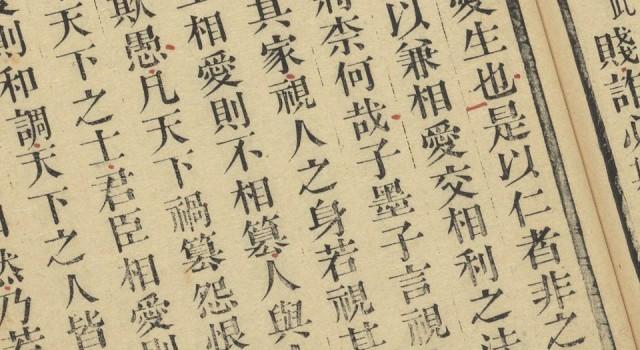 賤詐必
愛生也是以仁者非之
以兼相愛交相利之法
柰何哉子墨子言視
其家視人之身若視其
相愛則不相篡人與
欺愚凡天下禍篡怨恨
天下之士君臣相愛則
則和調天下之人皆
然乃若